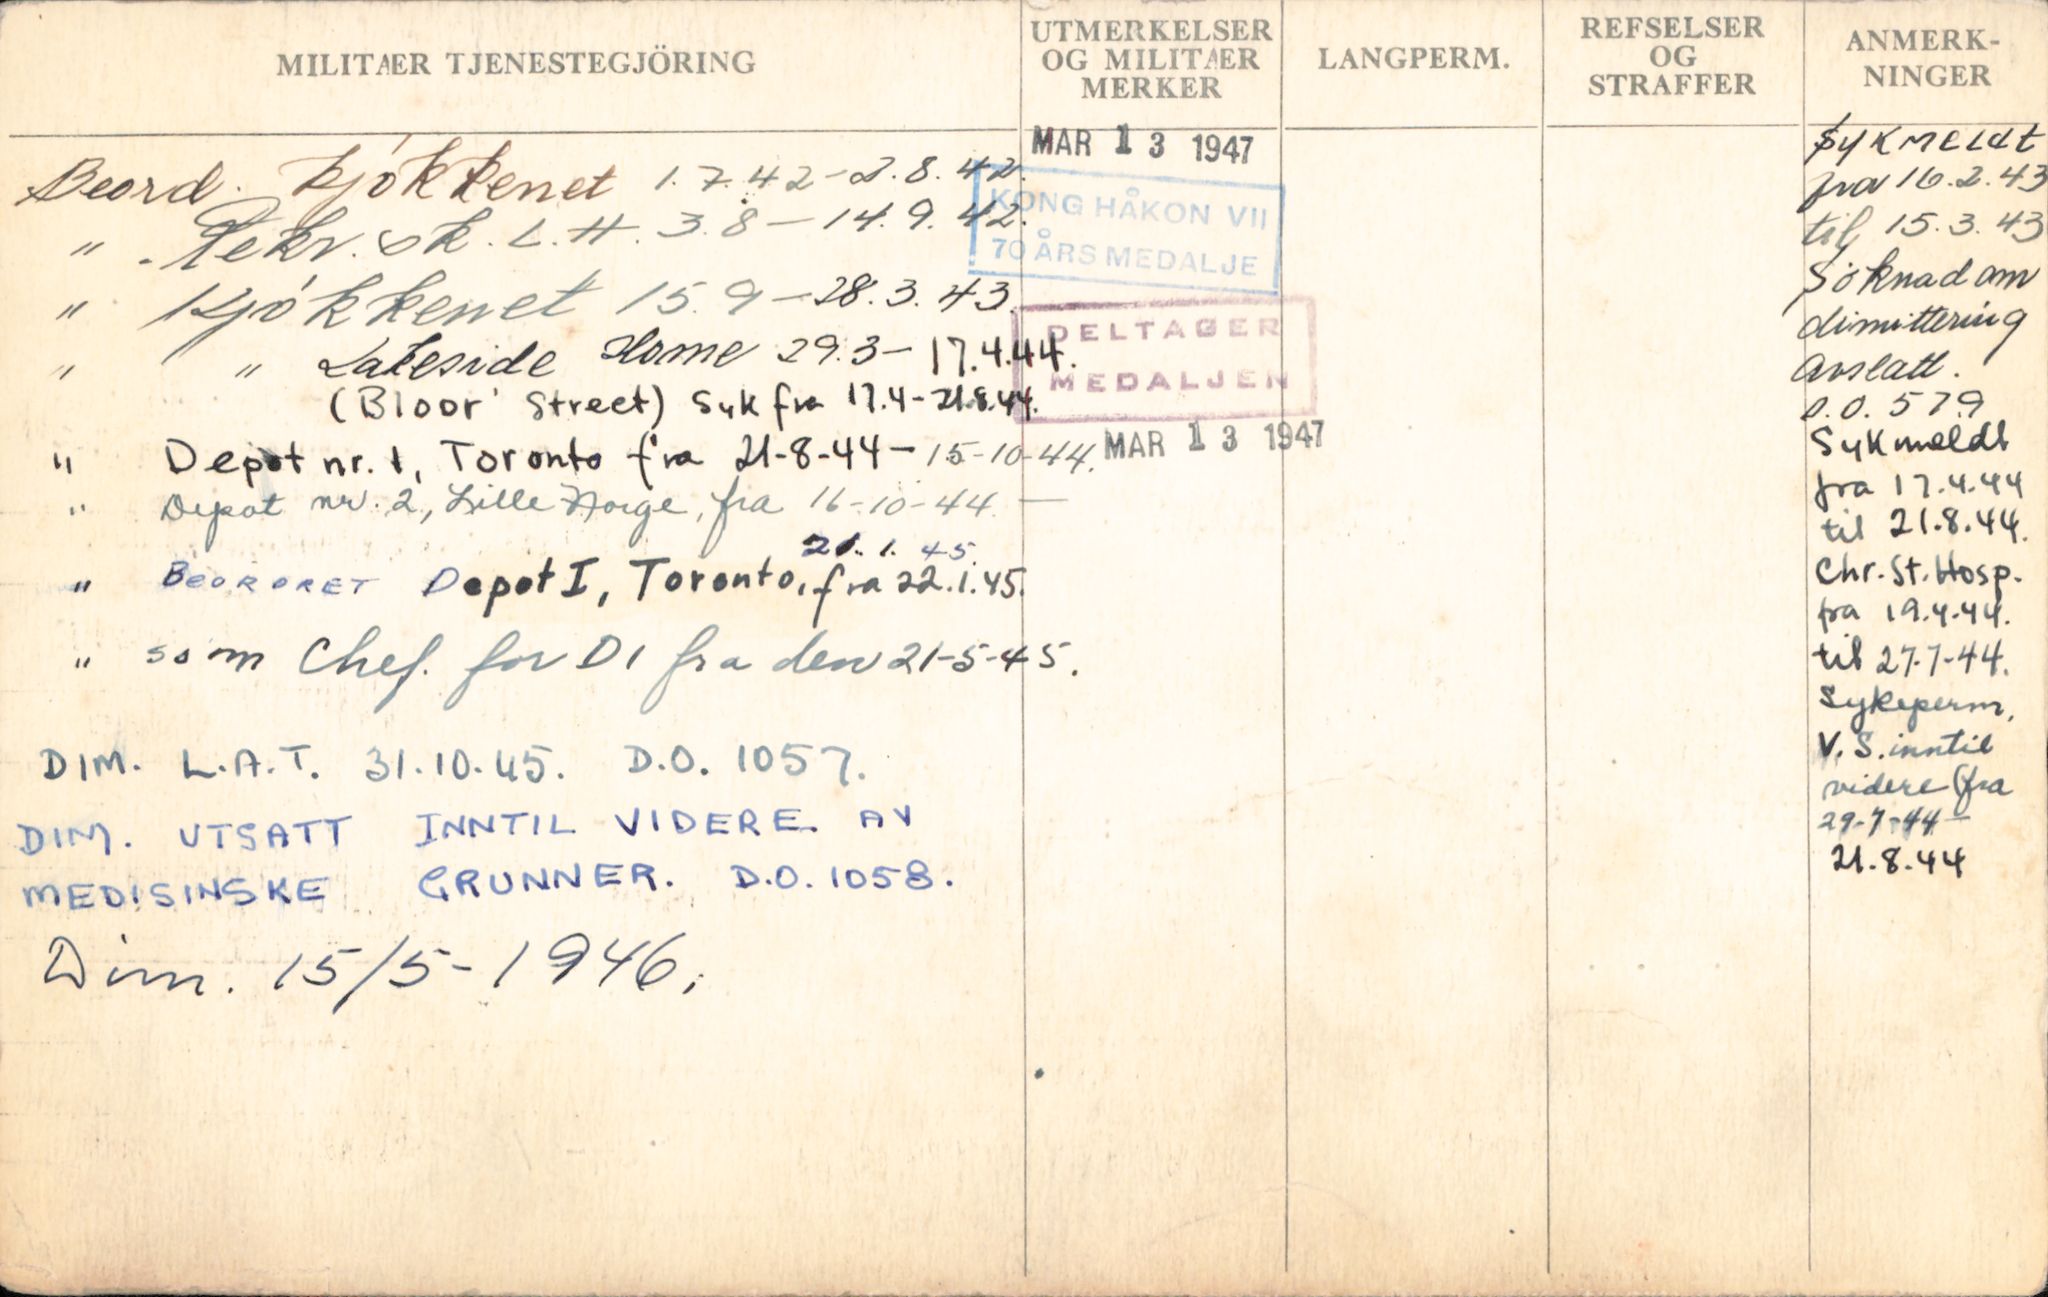 MILITÆR TJENESTEGJÖRING
UTMERKELSER
OG MILITÆR
MERKER
LANGPERM.
REFSELSER
OG
STRAFFER
ANMERK-
NINGER
Beord. Kjökkenet 1.7.42-2.8.42.
" Rekr. sk. L.H. 3.8-14.9.42.
" Kjökkenet 15.9-28.3.43.
" " Lakeside Home 29.3-17.4.44.
(Bloor Street) Syk fra 17.4-21.8.44.
" Depot nr. 1, Toronto fra 21-8-44-15-10-44.
" Depot nr. 2, Lille Norge, fra 16-10-44 -
21.1.45.
" BEORDRET Depot I, Toronto, fra 22.1.45.
" som Chef. for D1 fra den 21-5-45.
DIM. L.A.T. 31.10.45. D.O. 1057.
DIM. UTSATT INNTIL VIDERE AV
MEDISINSKE GRUNNER. D.O. 1058.
Dim. 15/5-1946.
MAR 13 1947
KONG HÅKON VII
70 ÅRS MEDALJE
DELTAGER
MEDALJEN
MAR 13 1947
Sykmeldt
fra 16.2.43
til 15.3.43
Söknad om
dimittering
avslått.
D.O. 579
Sykmeldt
fra 17.4.44
til 21.8.44.
Chr. St. Hosp.
fra 19.4.44.
til 27-7-44.
Sykeperm,
V.S. inntil
videre (fra
29-7-44-
21.8.44